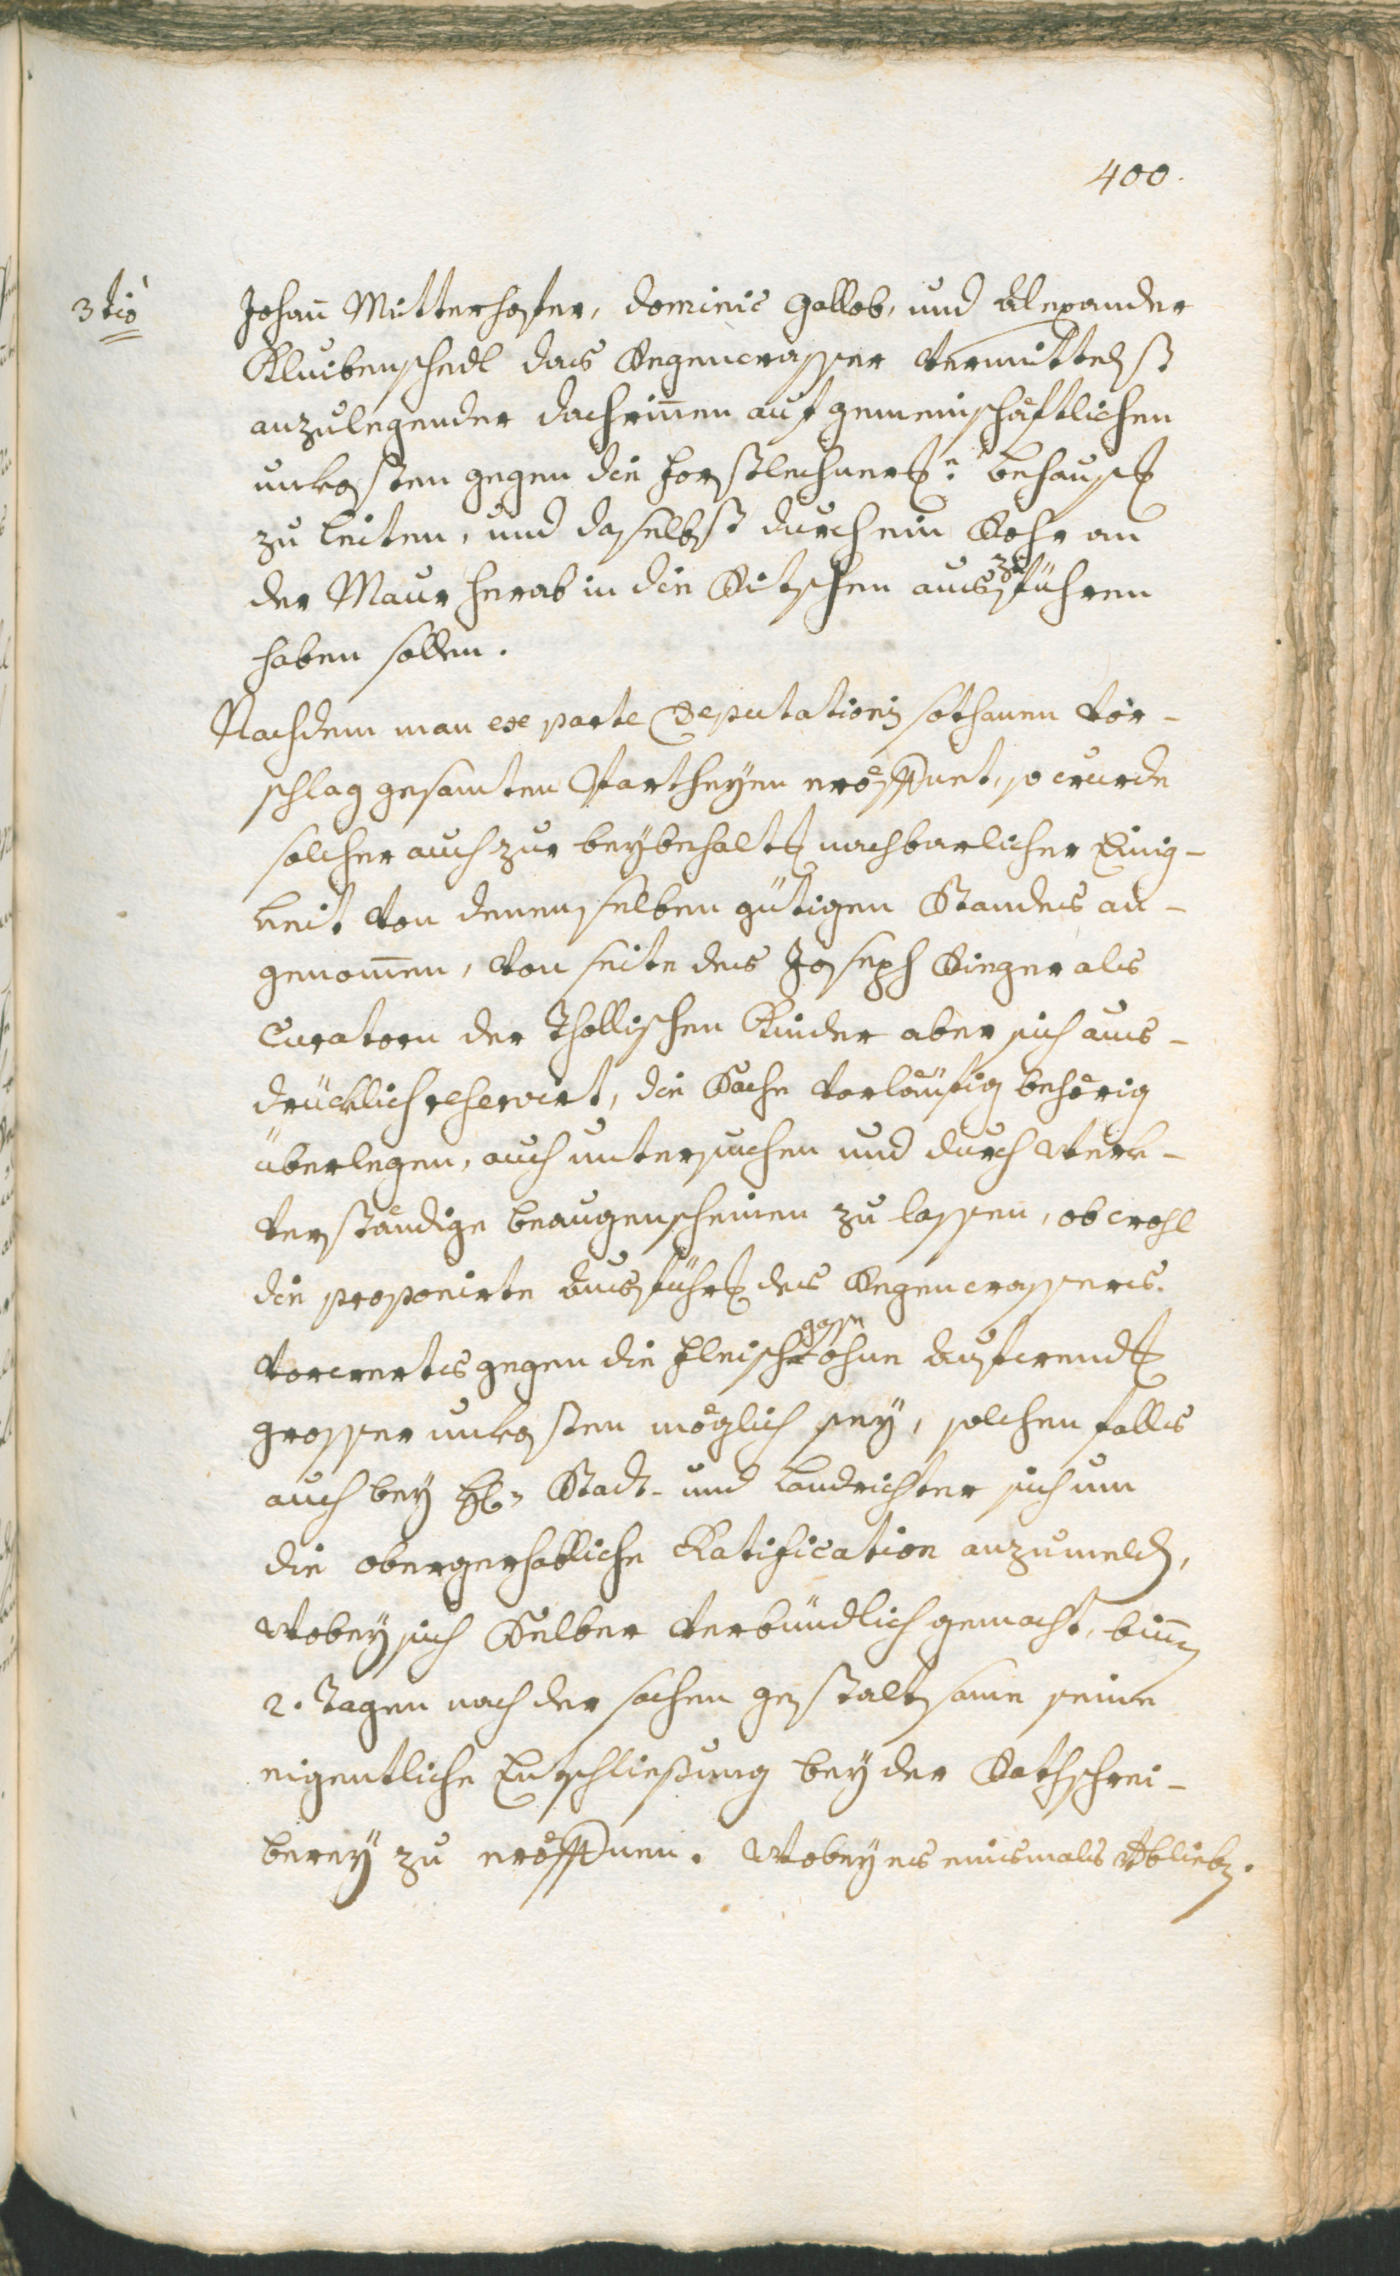 400.
3tiò Johan̄ Mitterhofer, Dominic Gallob, und Alexander
Kluibenschedl das Regenwasser vermittelst
anzulegender dachrin̄en auf gemeinschäftlichen
unkosten gegen die behausg
zu leiten, und daselbst durch ein Rohr an
der Maur herab in die Ritschen auszuführen
haben sollen.
Nachdem man ex parte Deputationis sothanen Vor-
schlag gesamten Partheyen eröffnet, so wurde
solcher auch zur beybehaltg nachbarlicher Einig-
keit von denenselben gütigen Standes an-
genom̄en, von seite des Joseph Rieger als
Curatorn der Thollischen Kinder aber sich aus-
drücklich reservirt, die Sache vorläufig behörig
überlegen, auch untersuchen und durch Werk-
verständige beaugenscheinen zu lassen, ob wohl
die proponirte Ausführg des Regenwassers
vorwerts gegen die Fleischgasse ohne Aufwendg
grosser unkosten möglich sey, solchen falls
auch bey H: Stadt- und Landrichter sich um
die obergerhabliche Ratification anzumelden,
Wobey sich Selber verbündlich gemacht, bin̄en
2. Tagen nach der sachen gestaltsame seine
eigentliche Entschließung bey der Rathschrei-
berey zu eröffnen. Wobey es eинsmals Verblieben.